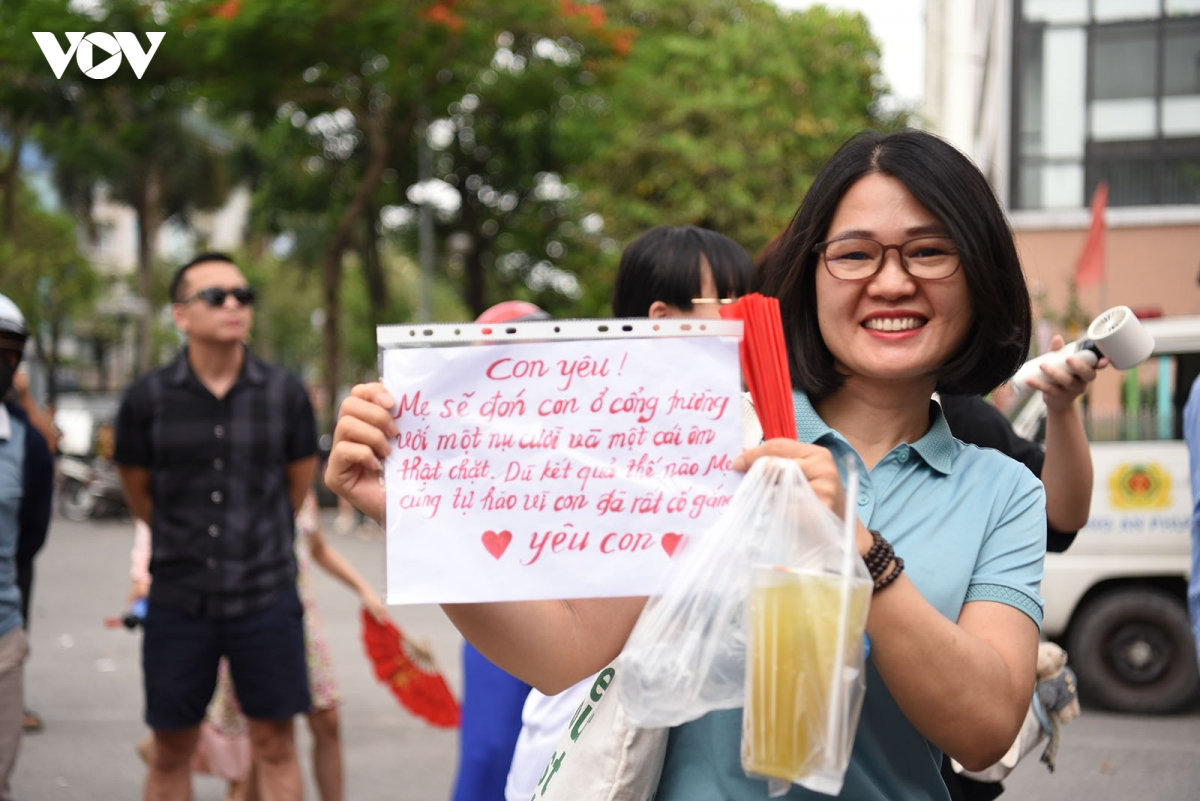 VOV
Con yêu!
Mẹ sẽ đón con ở cổng trường
với một nụ cười và một cái ôm
thật chặt. Dù kết quả thế nào Mẹ
cũng tự hào vì con đã rất cố gắng
yêu con